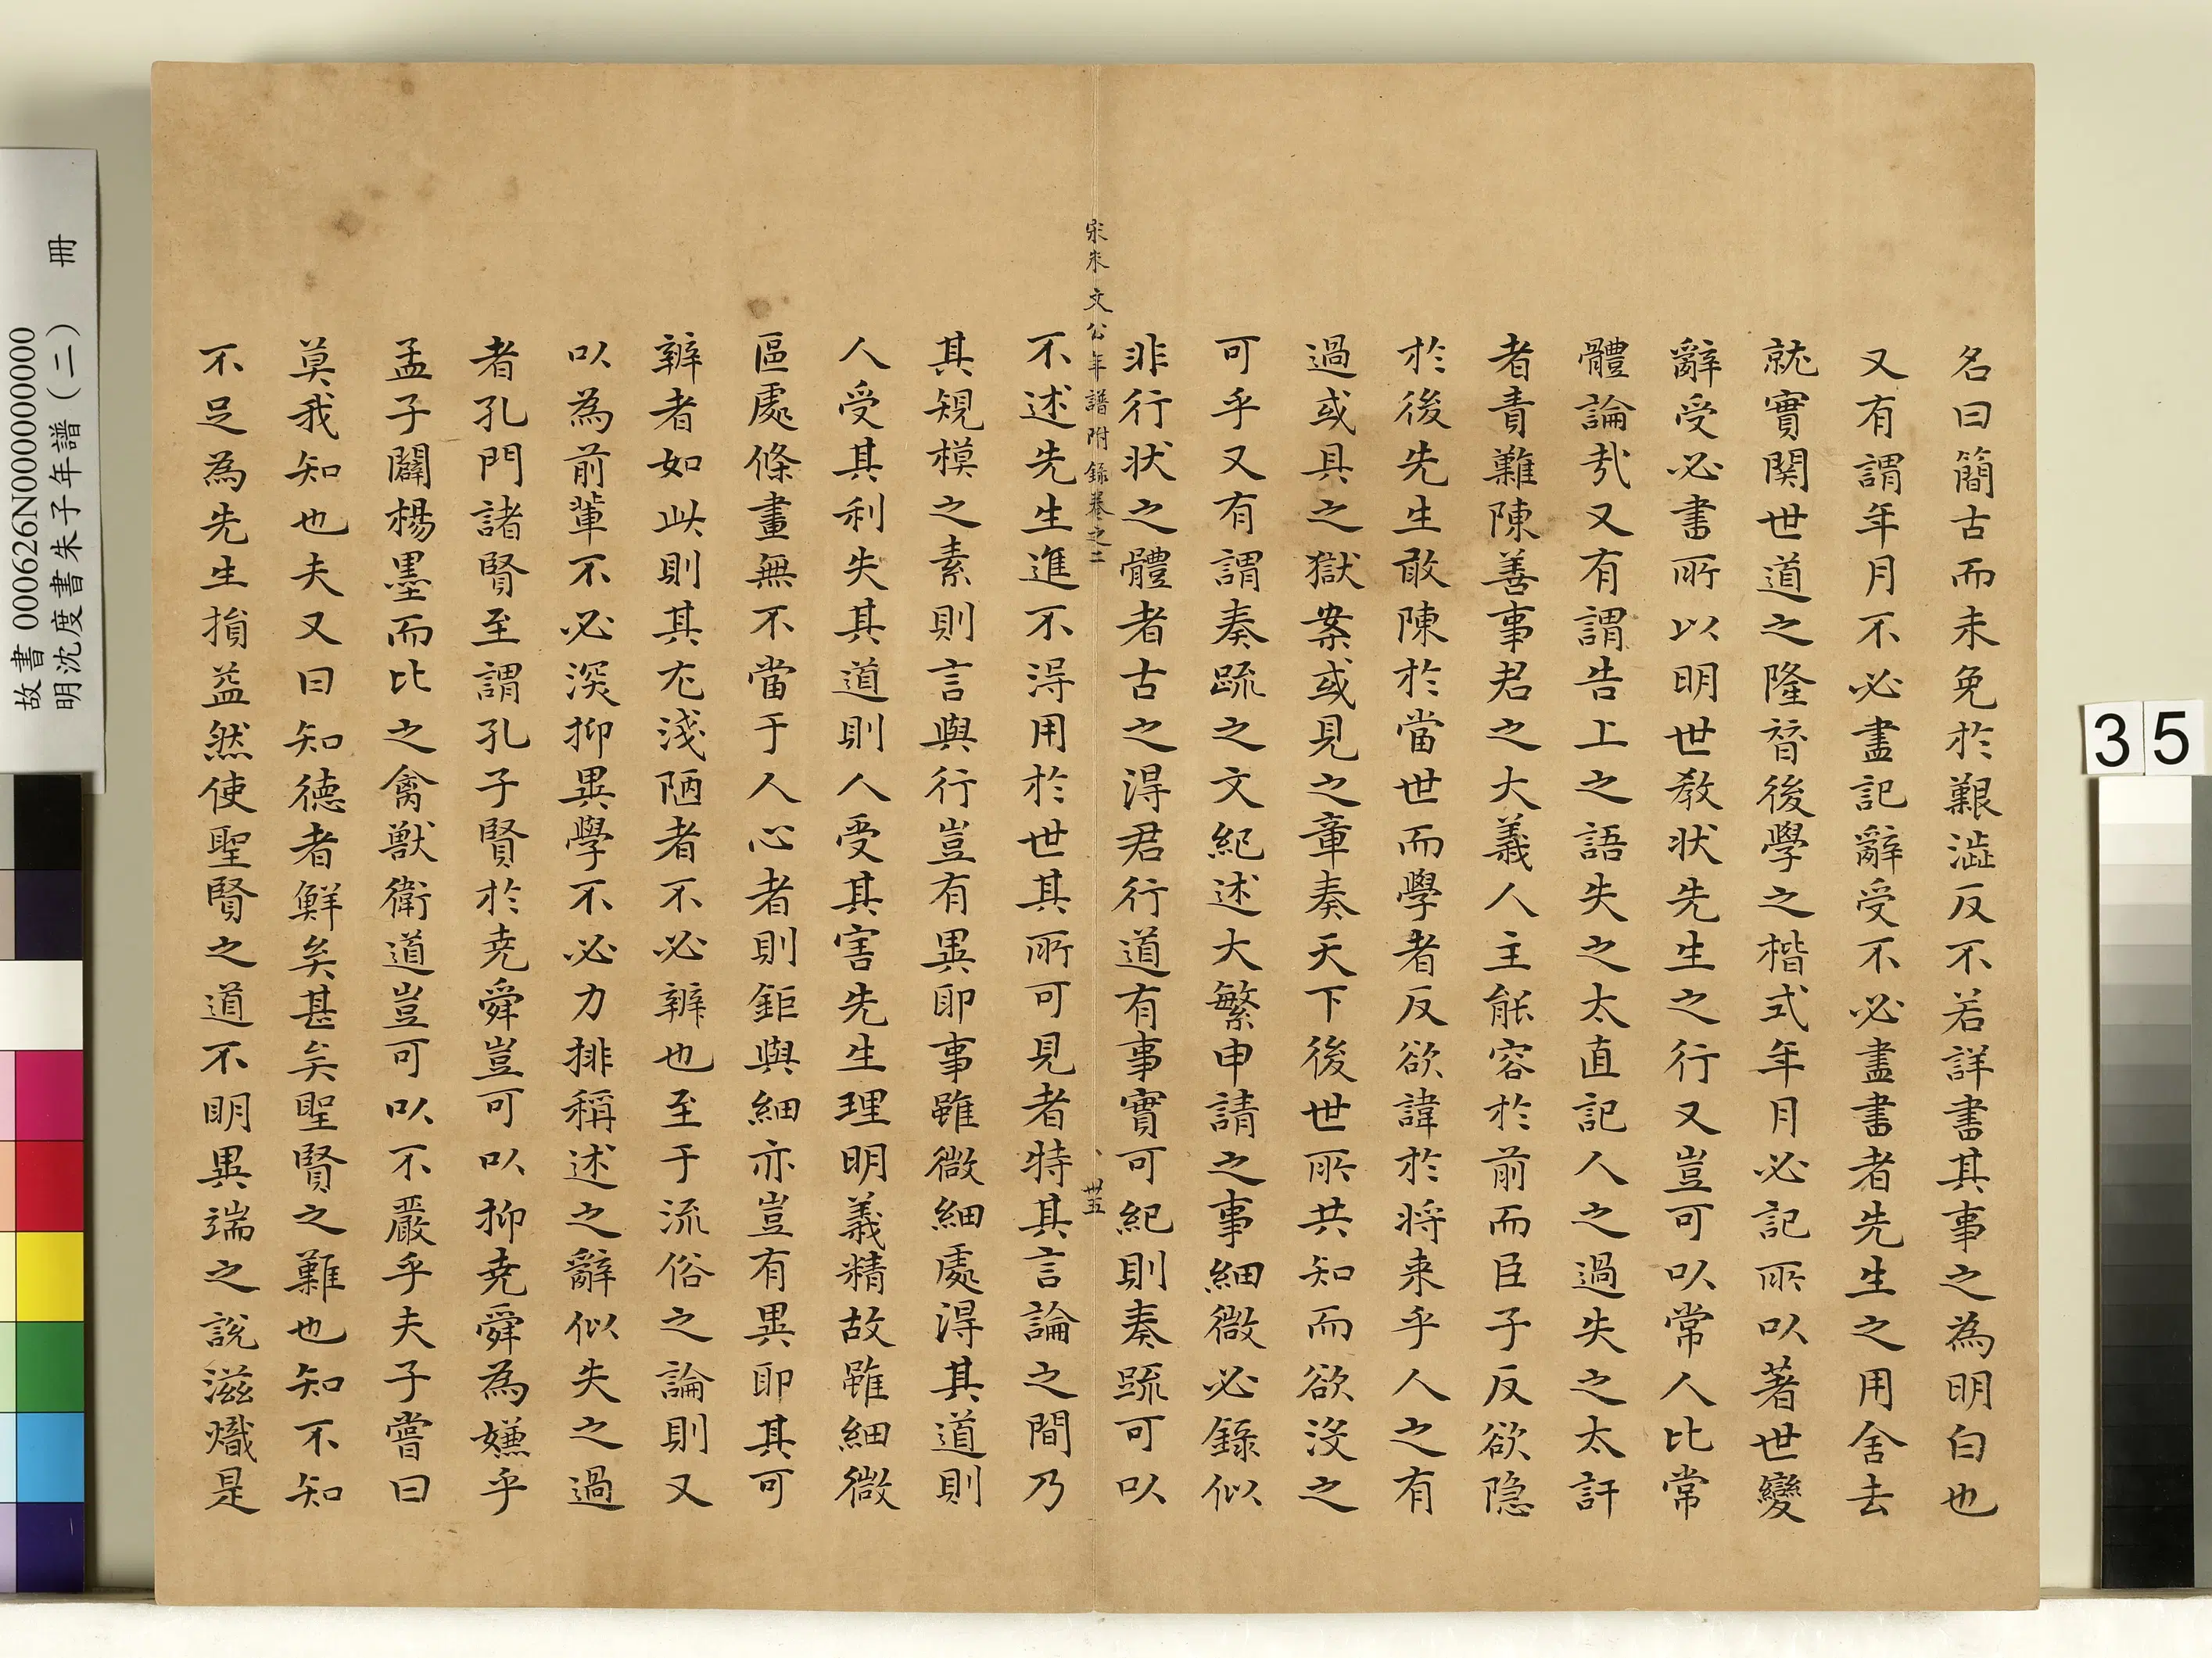 名曰簡古而未免於艱澁反不若詳書其事之為明白也
又有謂年月不必盡記辭受不必盡書者先生之用舍去
就實関世道之隆替後學之楷式年月必記所以著世變
辭受必書所以明世教狀先生之行又豈可以常人比常
體論㢤又有謂告上之語失之太直記人之過失之太訐
者責難陳善事君之大義人主能容於前而臣子反欲隐
於後先生敢陳於當世而學者反欲諱於将来乎人之有
過或具之獄案或見之章奏天下後世所共知而欲沒之
可乎又有謂奏疏之文紀述大繁申請之事細微必錄似
非行状之體者古之得君行道有事實可紀則奏疏可以
宋朱文公年譜附錄卷之二
卅五
不述先生進不得用於世其所可見者特其言論之間乃
其規模之素則言與行豈有異耶事雖微細處得其道則
人受其利失其道則人受其害先生理明義精故雖細微
區處條畫無不當于人心者則鉅與細亦豈有異耶其可
辨者如此則其尤淺陋者不必辨也至于流俗之論則又
以為前輩不必深抑異學不必力排稱述之辭似失之過
者孔門諸賢至謂孔子賢於尭舜豈可以抑尭舜為嫌乎
孟子闢楊墨而比之禽獸衛道豈可以不嚴乎夫子嘗曰
莫我知也夫又曰知德者鮮矣甚矣聖賢之難也知不知
不足為先生損益然使聖賢之道不明異端之說滋熾是
故書 000626N000000000
明沈度書朱子年譜（二） 冊
35